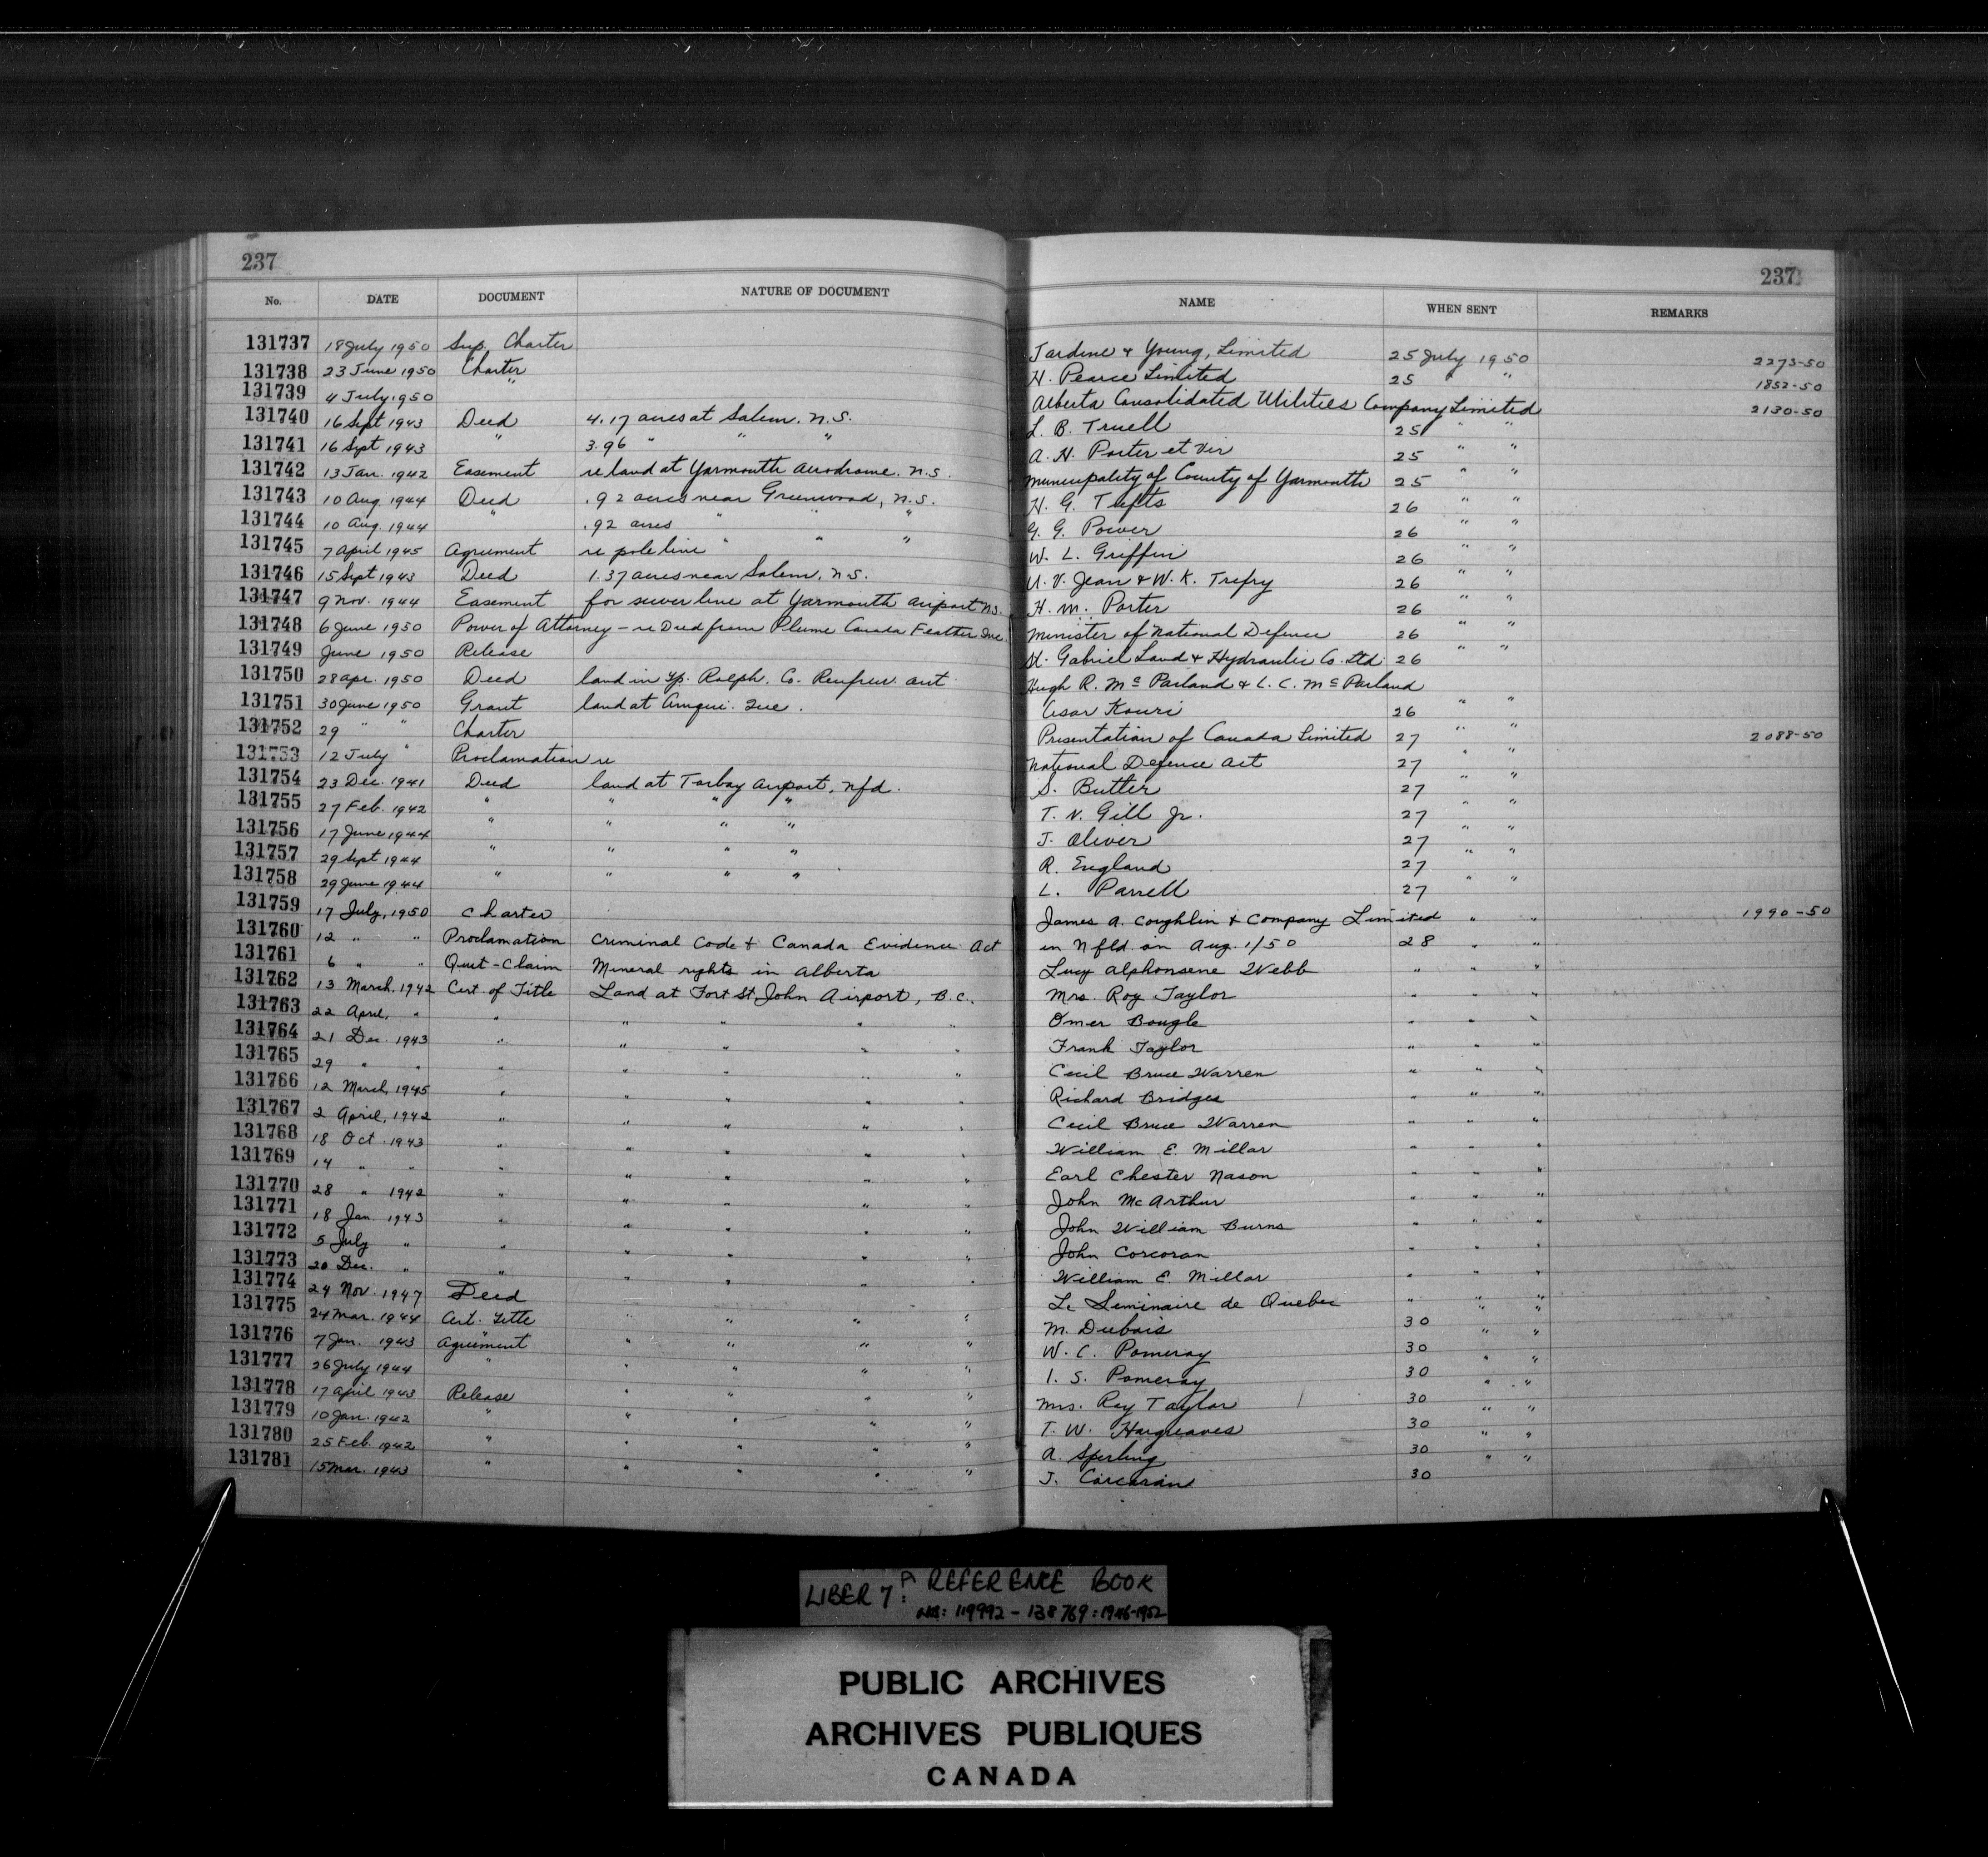 237 237
No. DATE DOCUMENT NATURE OF DOCUMENT NAME WHEN SENT REMARKS
131737 18 July 1950 Sup. Charter Jardine & Young, Limited 25 July 1950 2273-50
131738 23 June 1950 Charter H. Pearce Limited 25 " " 1852-50
131739 4 July 1950 " Alberta Consolidated Utilities Company Limited 2130-50
131740 16 Sept 1943 Deed 4.17 acres at Salem, N.S. L. B. Truell 25 " "
131741 16 Sept 1943 " 3.96 " " " A. H. Porter et Vir 25 " "
131742 13 Jan. 1942 Easement re land at Yarmouth Aerodrome. N.S. Municipality of County of Yarmouth 25 " "
131743 10 Aug. 1944 Deed .92 acres near Greenwood, N.S. H. G. Tufts 26 " "
131744 10 Aug. 1944 " .92 acres " " " G. G. Power 26 " "
131745 7 April 1945 Agreement re pole line " " " W. L. Griffin 26 " "
131746 15 Sept 1943 Deed 1.37 acres near Salem, N.S. U. V. Jean & W. K. Trefry 26 " "
131747 9 Nov. 1944 Easement for sewer line at Yarmouth Airport N.S. H. M. Porter 26 " "
131748 6 June 1950 Power of Attorney - re Deed from Plume Canada Feather Inc. Minister of National Defence 26 " "
131749 June 1950 Release St. Gabriel Land & Hydraulic Co. Ltd. 26 " "
131750 28 Apr. 1950 Deed land in Tp. Rolph. Co. Renfrew. Ont. Hugh R. McParland & L. C. McParland
131751 30 June 1950 Grant land at Amqui. Que. Cesar Kouri 26 " "
131752 29 " " Charter Presentation of Canada Limited 27 " " 2088-50
131753 12 July " Proclamation re National Defence Act 27 " "
131754 23 Dec. 1941 Deed land at Torbay Airport, Nfd. S. Butler 27 " "
131755 27 Feb. 1942 " " " " T. V. Gill Jr. 27 " "
131756 17 June 1944 " " " " J. Oliver 27 " "
131757 29 Sept 1944 " " " " R. England 27 " "
131758 29 June 1944 " " " " L. Parrell 27 " "
131759 17 July, 1950 Charter James A. Coughlin & Company Limited " " 1990-50
131760 12 " " Proclamation Criminal Code & Canada Evidence Act in Nfld on Aug. 1/50 28 " "
131761 6 " " Quit-Claim Mineral rights in Alberta Lucy Alphonsene Webb " " "
131762 13 March, 1942 Cert. of Title Land at Fort St. John Airport, B.C. Mrs. Roy Taylor " " "
131763 22 April, " " " " " " Omer Bougle " " "
131764 21 Dec. 1943 " " " " " Frank Taylor " " "
131765 29 " " " " " " " Cecil Bruce Warren " " "
131766 12 March, 1945 " " " " " Richard Bridges " " "
131767 2 April, 1942 " " " " " Cecil Bruce Warren " " "
131768 18 Oct. 1943 " " " " " William E. Millar " " "
131769 14 " " " " " " " Earl Chester Nason " " "
131770 28 " 1942 " " " " " John McArthur " " "
131771 18 Jan. 1943 " " " " " John William Burns " " "
131772 5 July " " " " " " John Corcoran " " "
131773 20 Dec. " " " " " " William E. Millar " " "
131774 24 Nov. 1947 Deed Le Seminaire de Quebec " " "
131775 24 Mar. 1944 Cert. Title " " " " M. Dubois 30 " "
131776 7 Jan. 1943 Agreement " " " " W. C. Pomeroy 30 " "
131777 26 July 1944 " " " " " I. S. Pomeroy 30 " "
131778 17 April 1943 Release " " " " Mrs. Roy Taylor 30 " "
131779 10 Jan. 1942 " " " " " T. W. Hargreaves 30 " "
131780 25 Feb. 1942 " " " " " A. Sperling 30 " "
131781 15 Mar. 1943 " " " " " J. Corcoran 30 " "
LIBER 7: A REFERENCE BOOK
NOS: 119992 - 138769: 1946-1952
PUBLIC ARCHIVES
ARCHIVES PUBLIQUES
CANADA